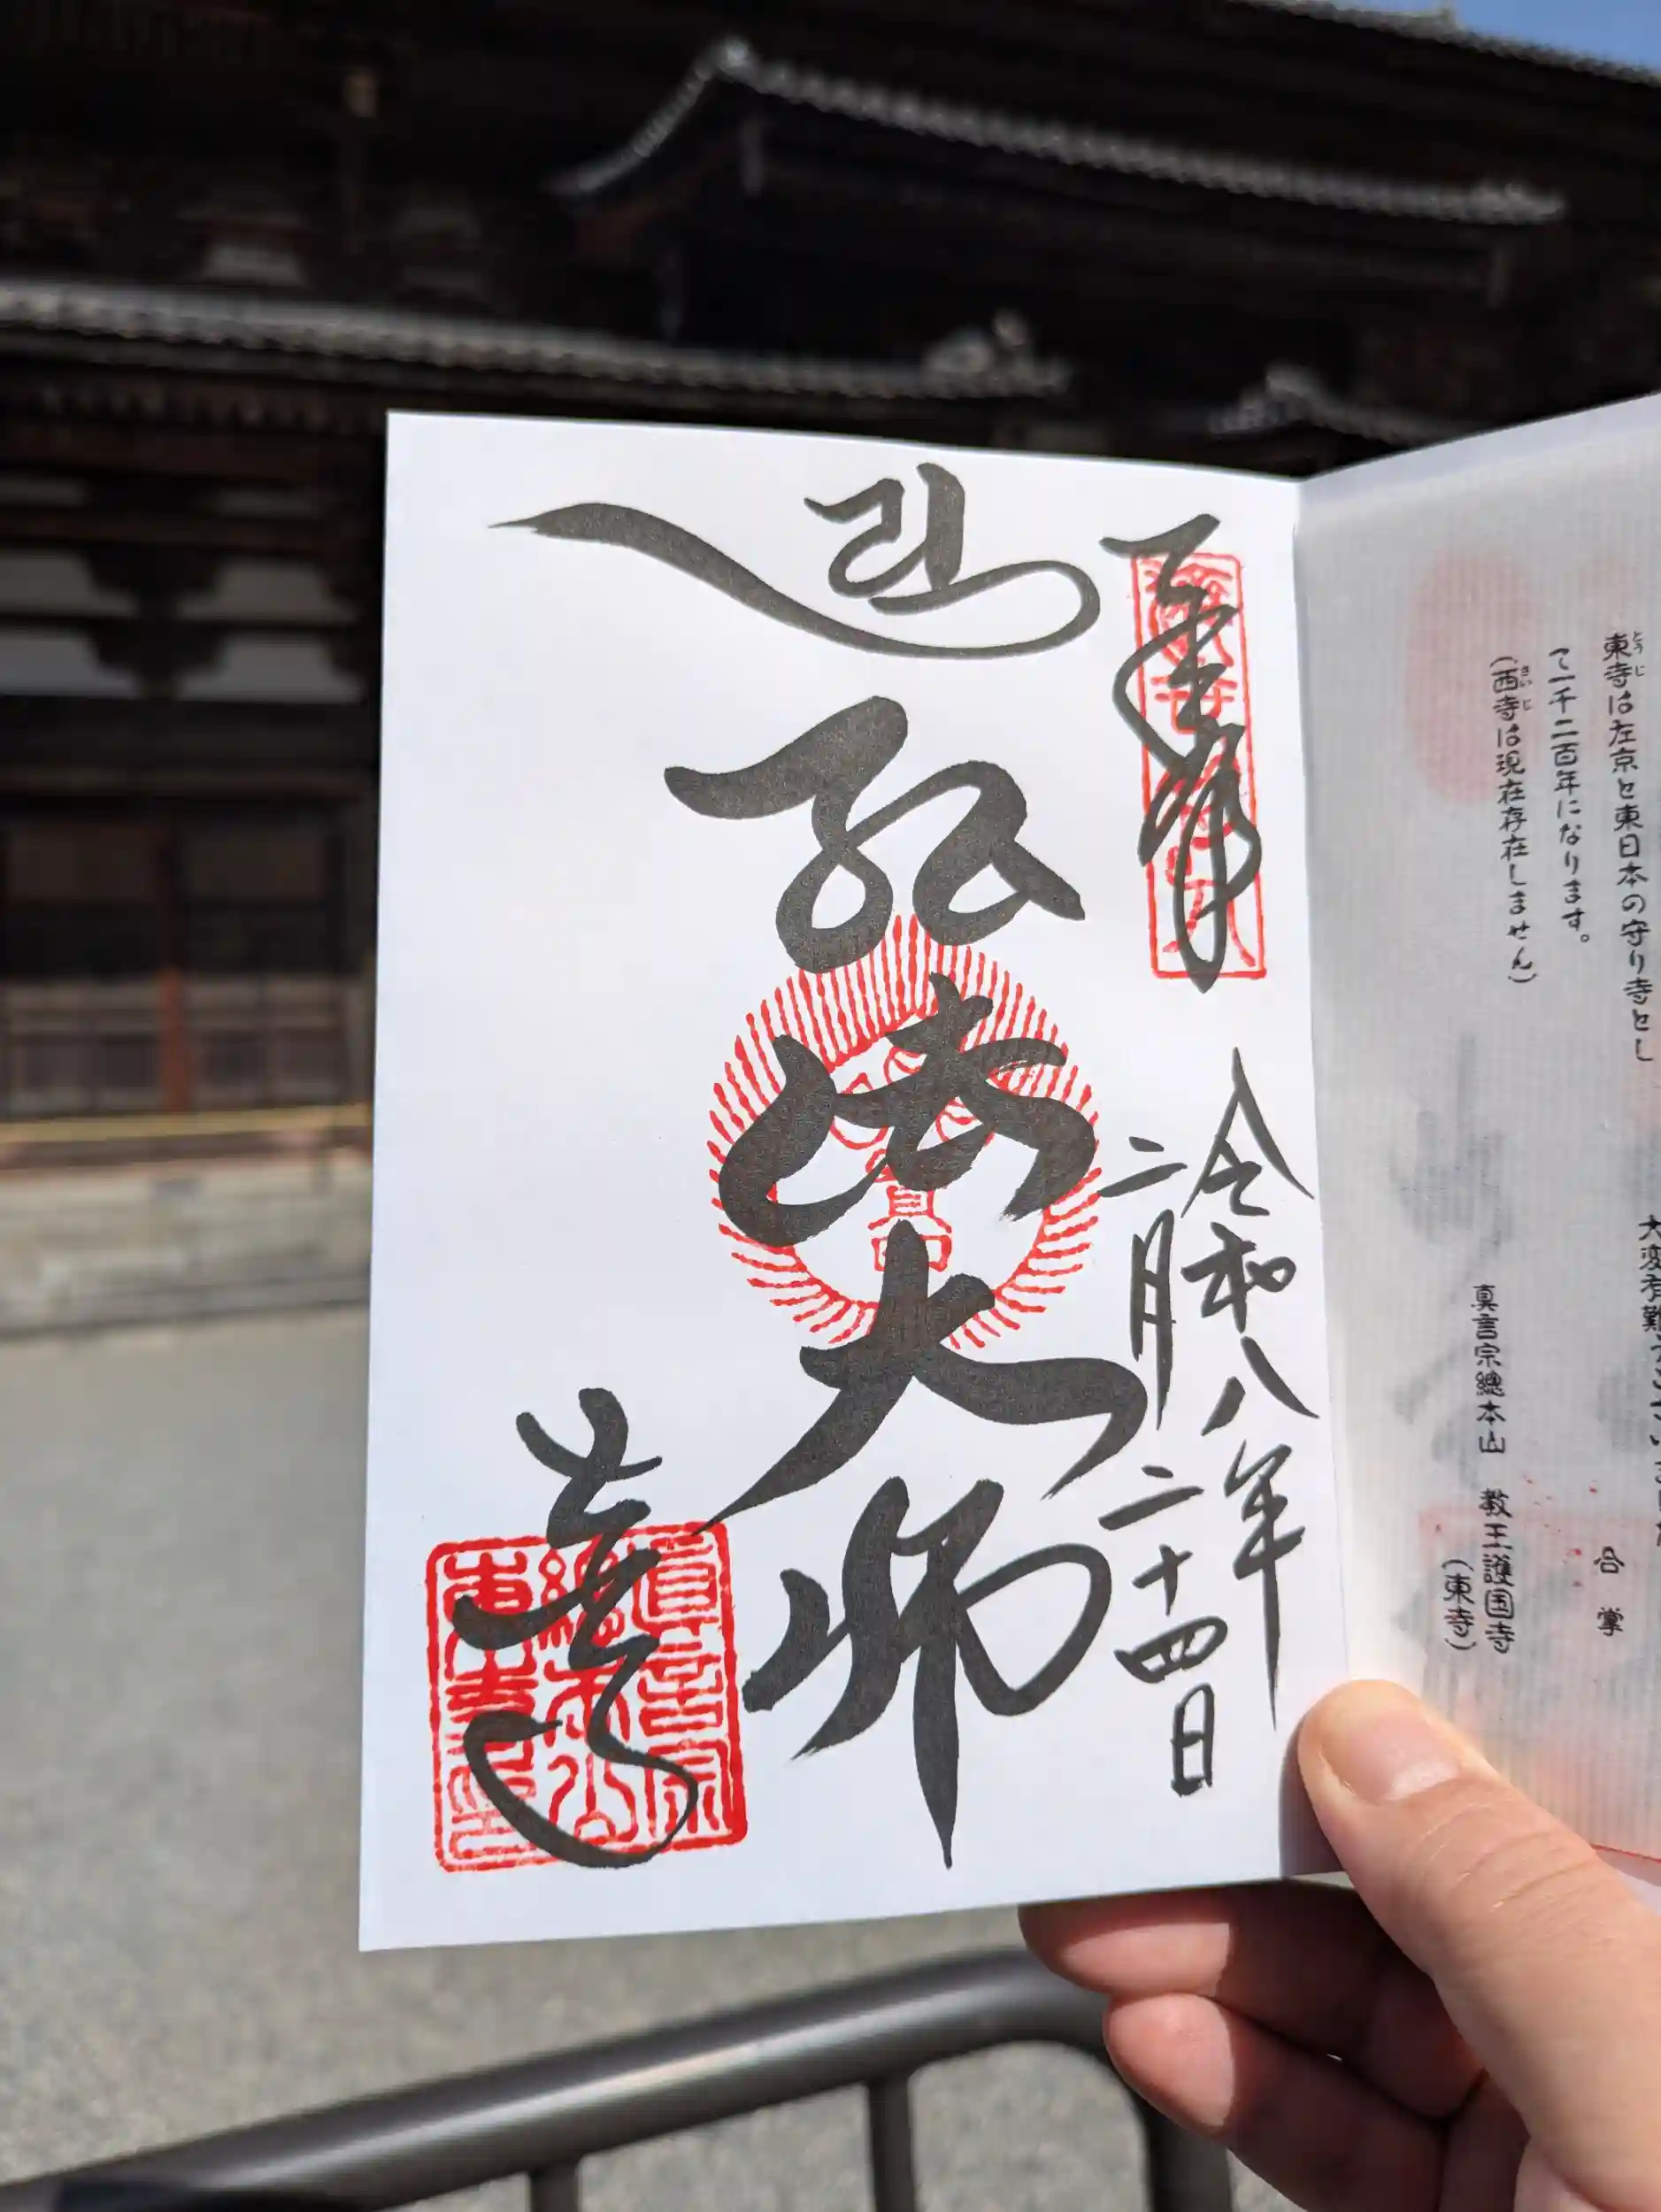 東寺は左京と東日本の守り寺とし
て一千二百年になります。
(西寺は現在存在しません)
合掌
真言宗總本山 教王護国寺
(東寺)
奉拝
令和八年
二月二十四日
弘法大師
東寺
真言宗
總本山
東寺印